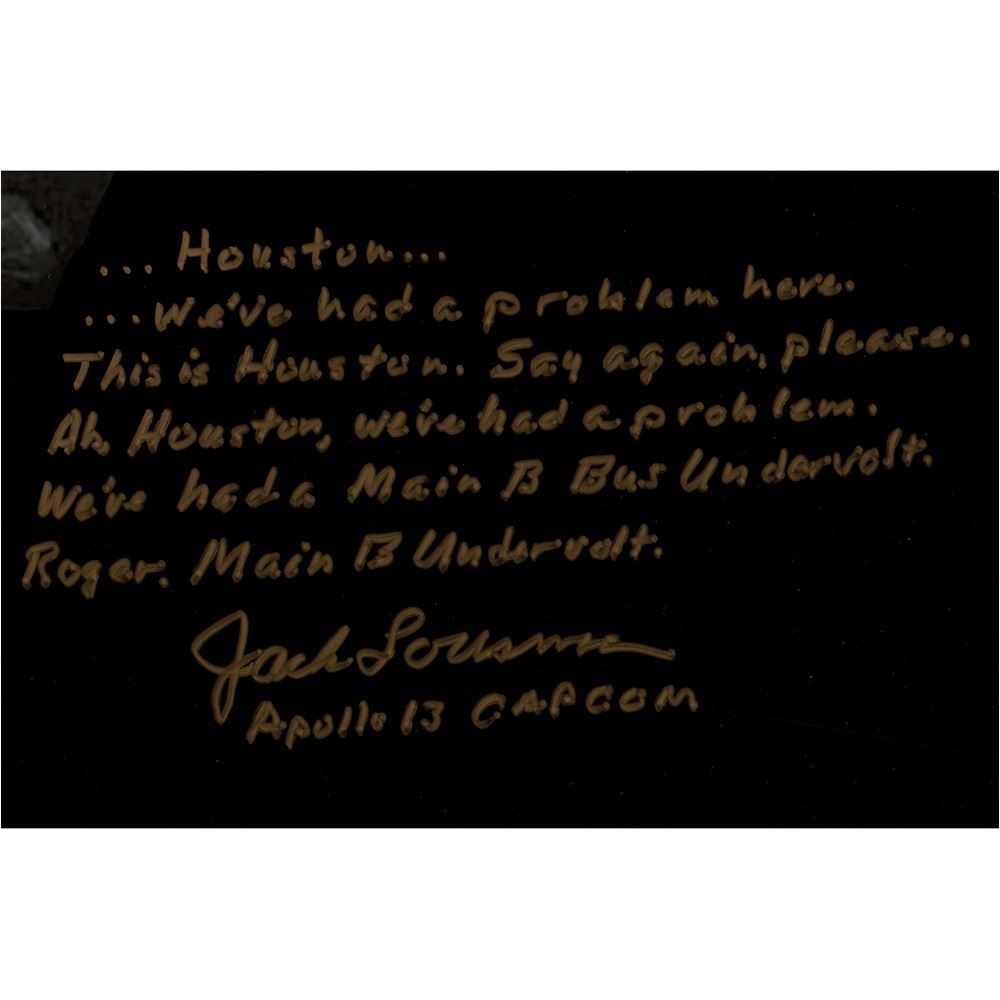 ... Houston...
...We've had a problem here.
This is Houston. Say again, please.
Ah, Houston, we've had a problem.
We've had a Main B Bus Undervolt.
Roger. Main B Undervolt.
Jack Lousma
Apollo 13 CAPCOM